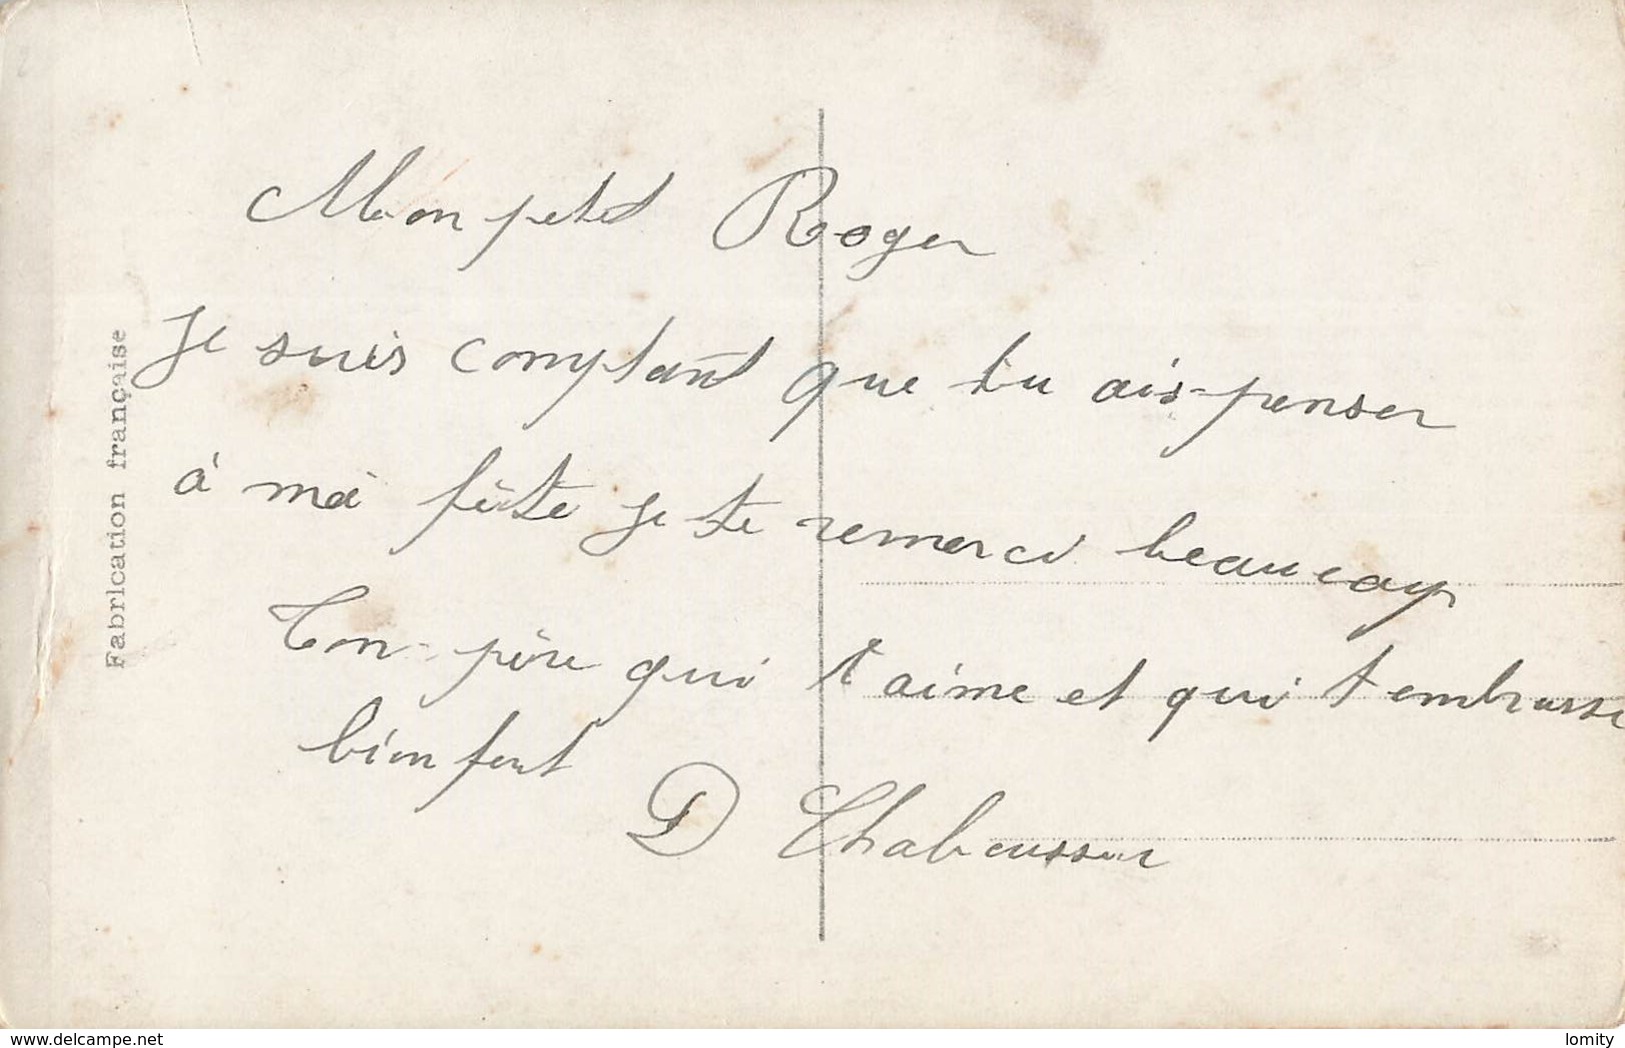 Mon petit Roger
Je suis comptant que tu ais penser
à ma fête je te remerci beaucoup
Ton père qui t'aime et qui t embrasse
bien fort
D Chaboussou
Fabrication française
delcampe.net
lomity